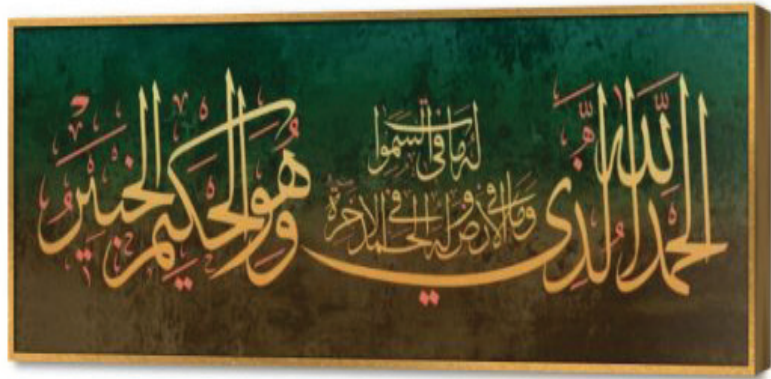 الحمد لله الذي
له ما في السموا
وما في الأرض وله الحمد في الآخرة
وهو الحكيم الخبير